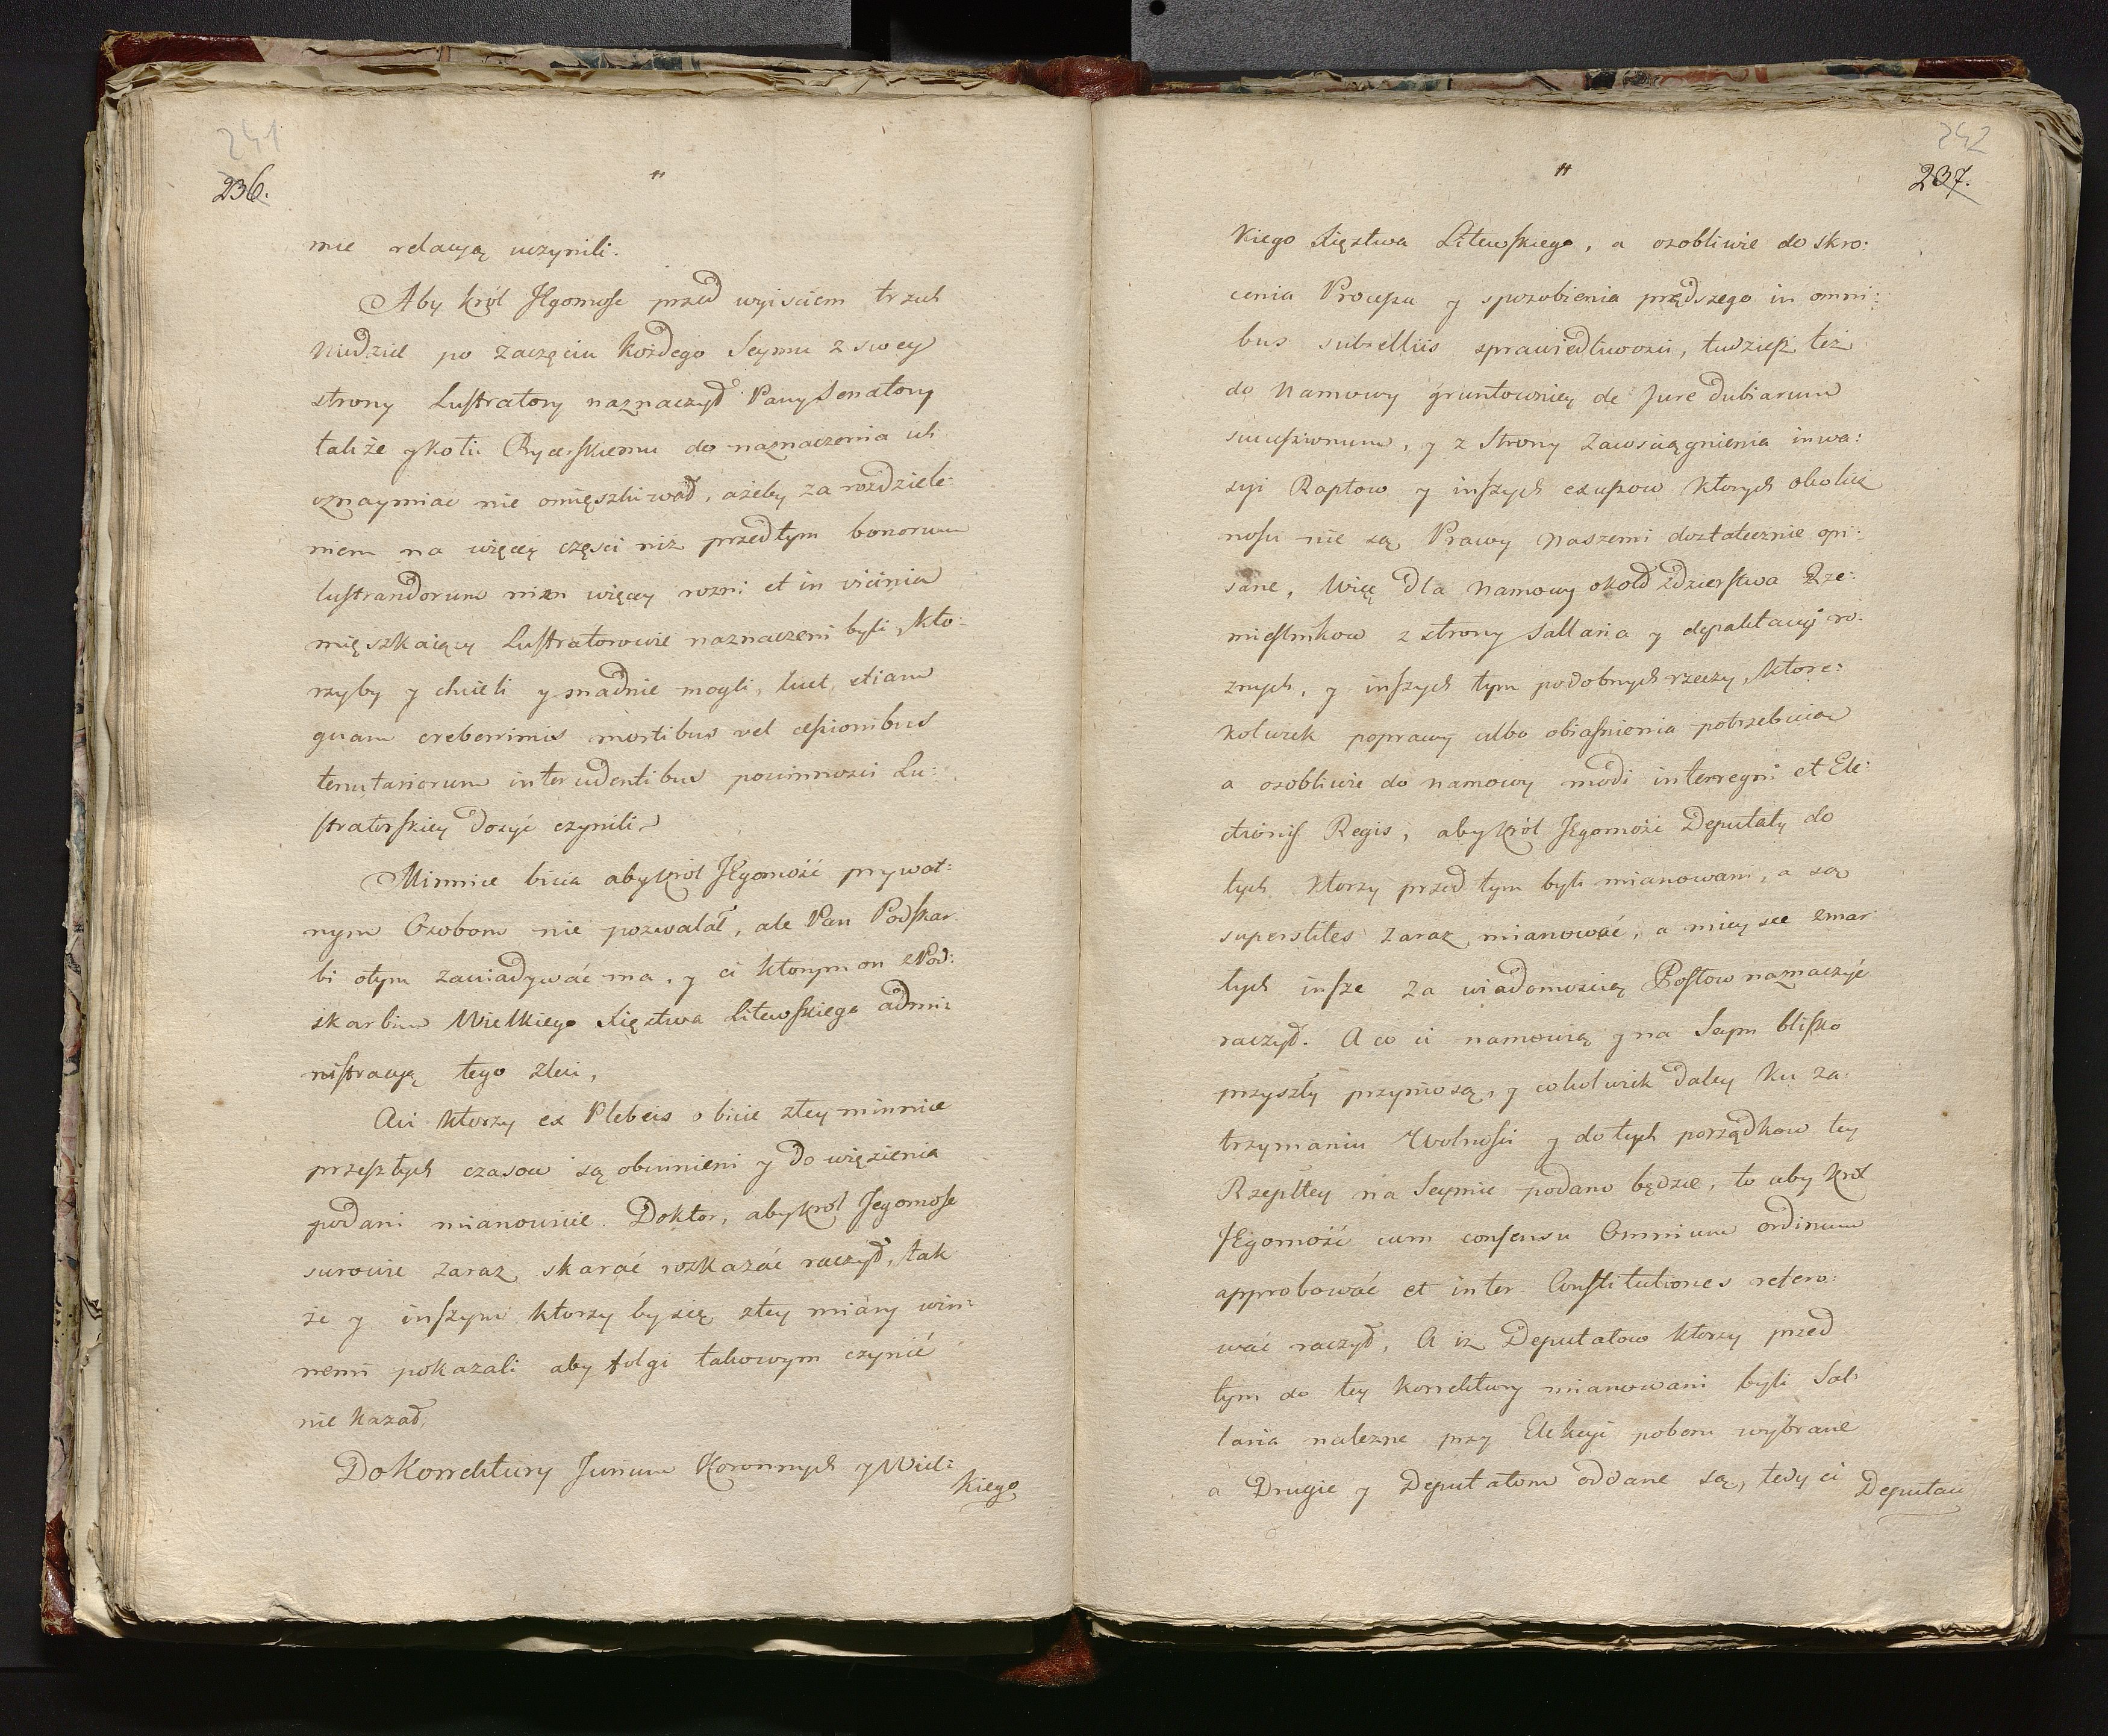 241
236.
"
mie relacyą uczynili.
Aby król JEgomośc przed wyiściem trzech
Niedziel po zaczęciu Kożdego Seymu z swey
strony Lustratory naznaczył Pany Senatory
takiże y Kołu Rycerskiemu do naznaczenia ich
oznaymiać nie omięszkiwał, ażeby za rozdziele:
niem na więcey częsci niż przedtym bonorum
lustrandorum więcey rozni et in vicinia
mięszkaiący Lustratorowie naznaczeni byli, kto:
rzyby y chcieli y snadnie mogli, licet etiam
quam creberrimis mortibus vel cessionibus
tenutariorum intercedentibus powinnosci Lu:
stratorskiey dosyć czynili
Minnice bicia aby król JEgomość prywat:
nym Osobom nie pozwalał, ale Pan Podskar
bi otym zawiadywać ma, y ci ktorym on z Pod:
skarbim Wielkiego Xięztwa Litewskiego admi:
nistracyą tego zleci,
A ci ktorzy ex Plebeis o bicie złey minnice
przeszłych czasow są obwinieni y do więzienia
podani mianowicie Doktor, aby król Jegomośc
surowie zaraz skarać rozkazać raczył, tak
że y inszym ktorzy by się złey miary win:
nemi pokazali aby folgi takowym czynić
nie kazał,
Do Korrektury Jurium Koronnych y Wiel:
kiego
242
237.
"
Kiego Xięztwa Litewskiego, a osobliwie do skro:
cenia Processu y sposobienia prędszego in omni:
bus subselliis sprawiedliwosci, tudziesz też
do Namowy gruntowniey de Jure dubiarum
successionum, y z Strony Zawsciągnienia inwa:
syi Raptow y inszych excessow ktorych okolicz
nosci nie są Prawy Naszemi dostatecznie opi:
sane, Więc dla Namowy około zdzierstwa Rze:
mieslnikow z strony Sallaria y depaktacyi ro:
znych, y inszych tym podobnych rzeczy, ktore:
kolwiek poprawy albo obiasnienia potrzebuią
a osobliwie do namowy modi interregni et Ele:
ctionis Regis, aby król JEgomość Deputaty do
tych ktorzy przed tym byli mianowani, a są
superstites zaraz mianować, a miey sce zmar
łych insze za wiadomoscią Posłow naznaczyć
raczył. A co ci namowią y na Seym blisko
przyszły przyniosą, y cokolwiek daley ku za:
trzymaniu Wolnosci y do tych porządkow tey
Rzepltey na Seymie podano będzie, to aby król
JEgomość cum consensu Omnium ordinum
approbować et inter Constitutiones refero:
wać raczył, A iż Deputatow ktorzy przed
tym do tey korrektury mianowani byli Sal
laria należne przy Elekcyi poboru wybrane
a Drugie y Deputatom oddane są, tedy ci
Deputaci